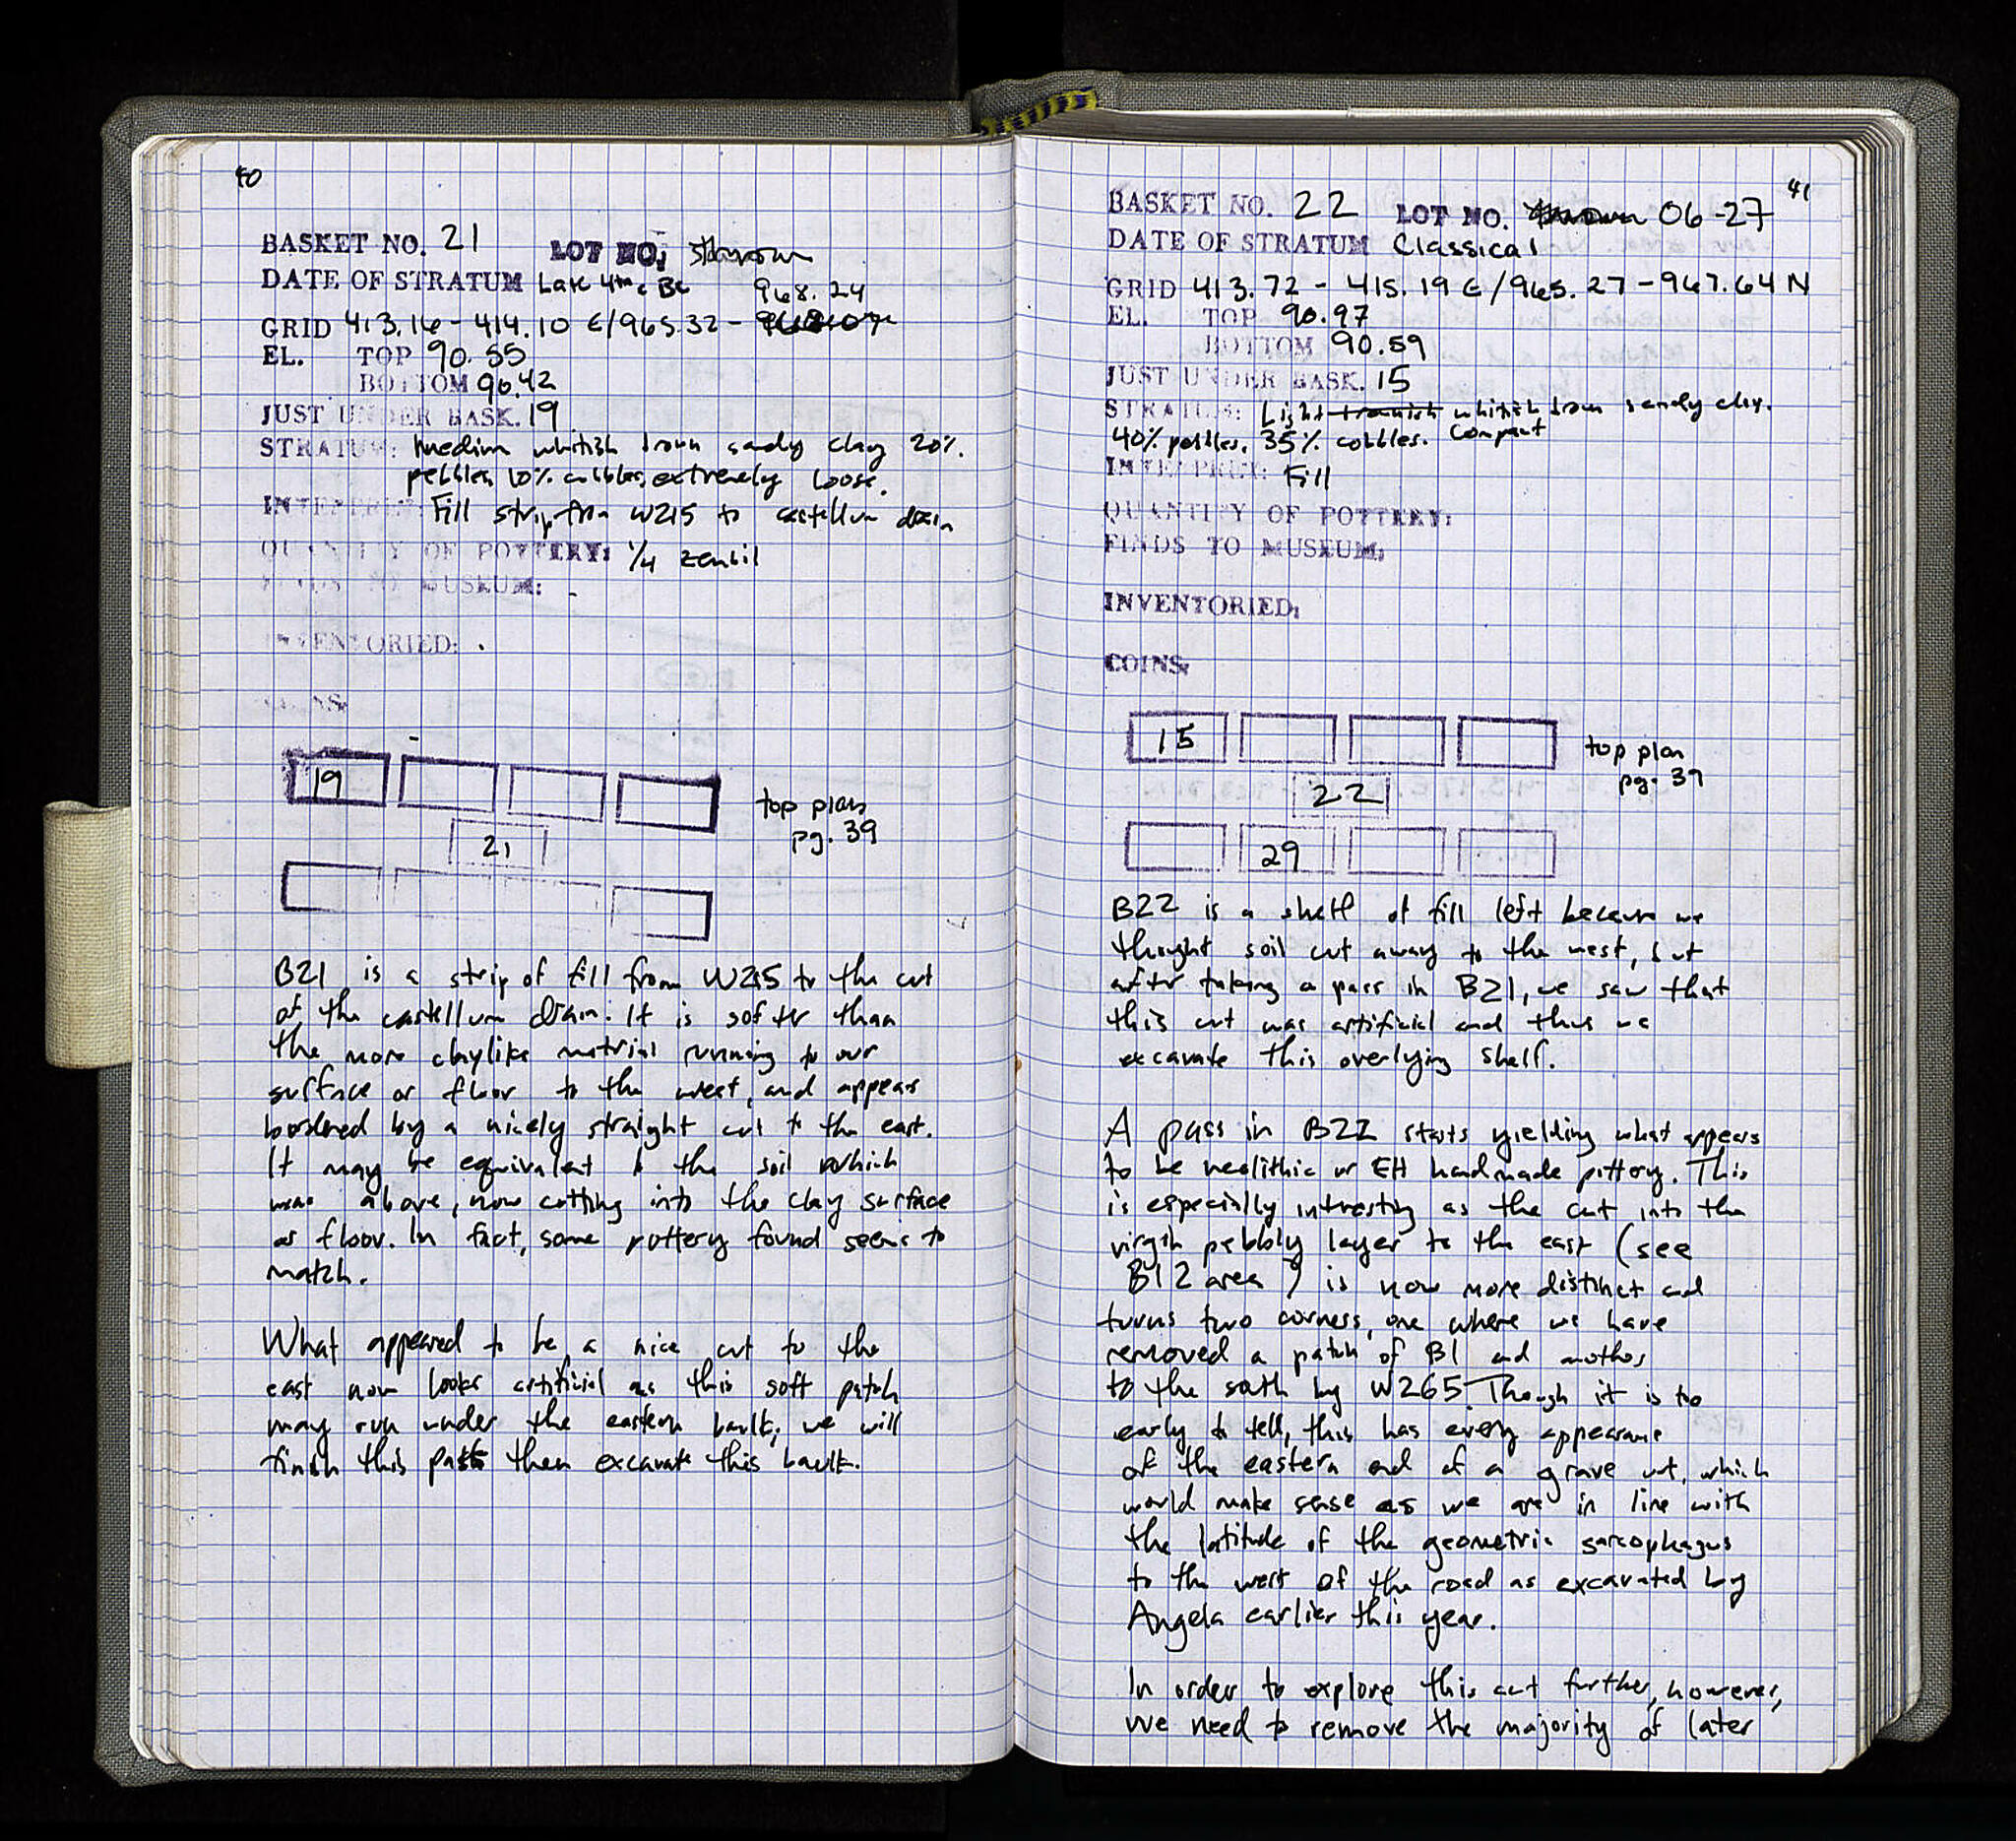 40
BASKET NO. 21 LOT NO. thrown
DATE OF STRATUM Late 4th c BC 968.24
GRID 413.16 - 414.10 E/965.32 -
EL. TOP 90.55
BOTTOM 90.42
JUST UNDER BASK. 19
STRATUM: medium whitish brown sandy clay 20%
pebbles, 10% cobbles, extremely loose.
INTERPRET: Fill strip from W215 to castellum drain
QUANTITY OF POTTERY: 1/4 zembil
FINDS TO MUSEUM: -
INVENTORIED: .
COINS: -
19
top plan
pg. 39
21
B21 is a strip of fill from W215 to the cut
of the castellum drain. It is softer than
the more claylike material running to our
surface or floor to the west, and appears
bordered by a nicely straight cut to the east.
It may be equivalent to the soil which
was above, now cutting into the clay surface
or floor. In fact, some pottery found seems to
match.
What appeared to be a nice cut to the
east now looks artificial as this soft patch
may run under the eastern baulk; we will
finish this pass then excavate this baulk.
41
BASKET NO. 22 LOT NO. 06-27
DATE OF STRATUM Classical
GRID 413.72 - 415.19 E/965.27 - 967.64 N
EL. TOP 90.97
BOTTOM 90.59
JUST UNDER BASK. 15
STRATUM: Light whitish brown sandy clay.
40% pebbles, 35% cobbles. Compact
INTERPRET: Fill
QUANTITY OF POTTERY:
FINDS TO MUSEUM:
INVENTORIED:
COINS:
15
top plan
pg. 39
22
29
B22 is a shelf of fill left because we
thought soil cut away to the west, but
after taking a pass in B21, we saw that
this cut was artificial and thus we
excavate this overlying shelf.
A pass in B22 starts yielding what appears
to be neolithic or EH handmade pottery. This
is especially intresting as the cut into the
virgin pebbly layer to the east (see
B12 area) is now more distinct and
turns two corners, one where we have
removed a patch of B1 and another
to the south by W265. Though it is too
early to tell, this has every appearance
of the eastern end of a grave cut, which
would make sense as we are in line with
the latitude of the geometric sarcophagus
to the west of the road as excavated by
Angela earlier this year.
In order to explore this cut further, however,
we need to remove the majority of later